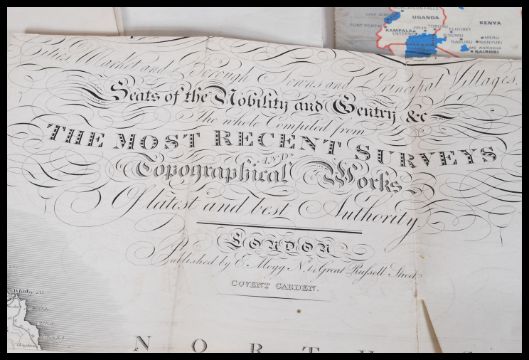 UGANDA
KENYA
KAMPALA
NAIROBI
Cities, Market and Borough Towns and Principal Villages,
Seats of the Nobility and Gentry &c
The whole Compiled from
THE MOST RECENT SURVEYS
AND
Topographical Works
Of latest and best Authority
LONDON
Published by E. Mogg No. Great Russell Street
COVENT GARDEN.
N O R T H